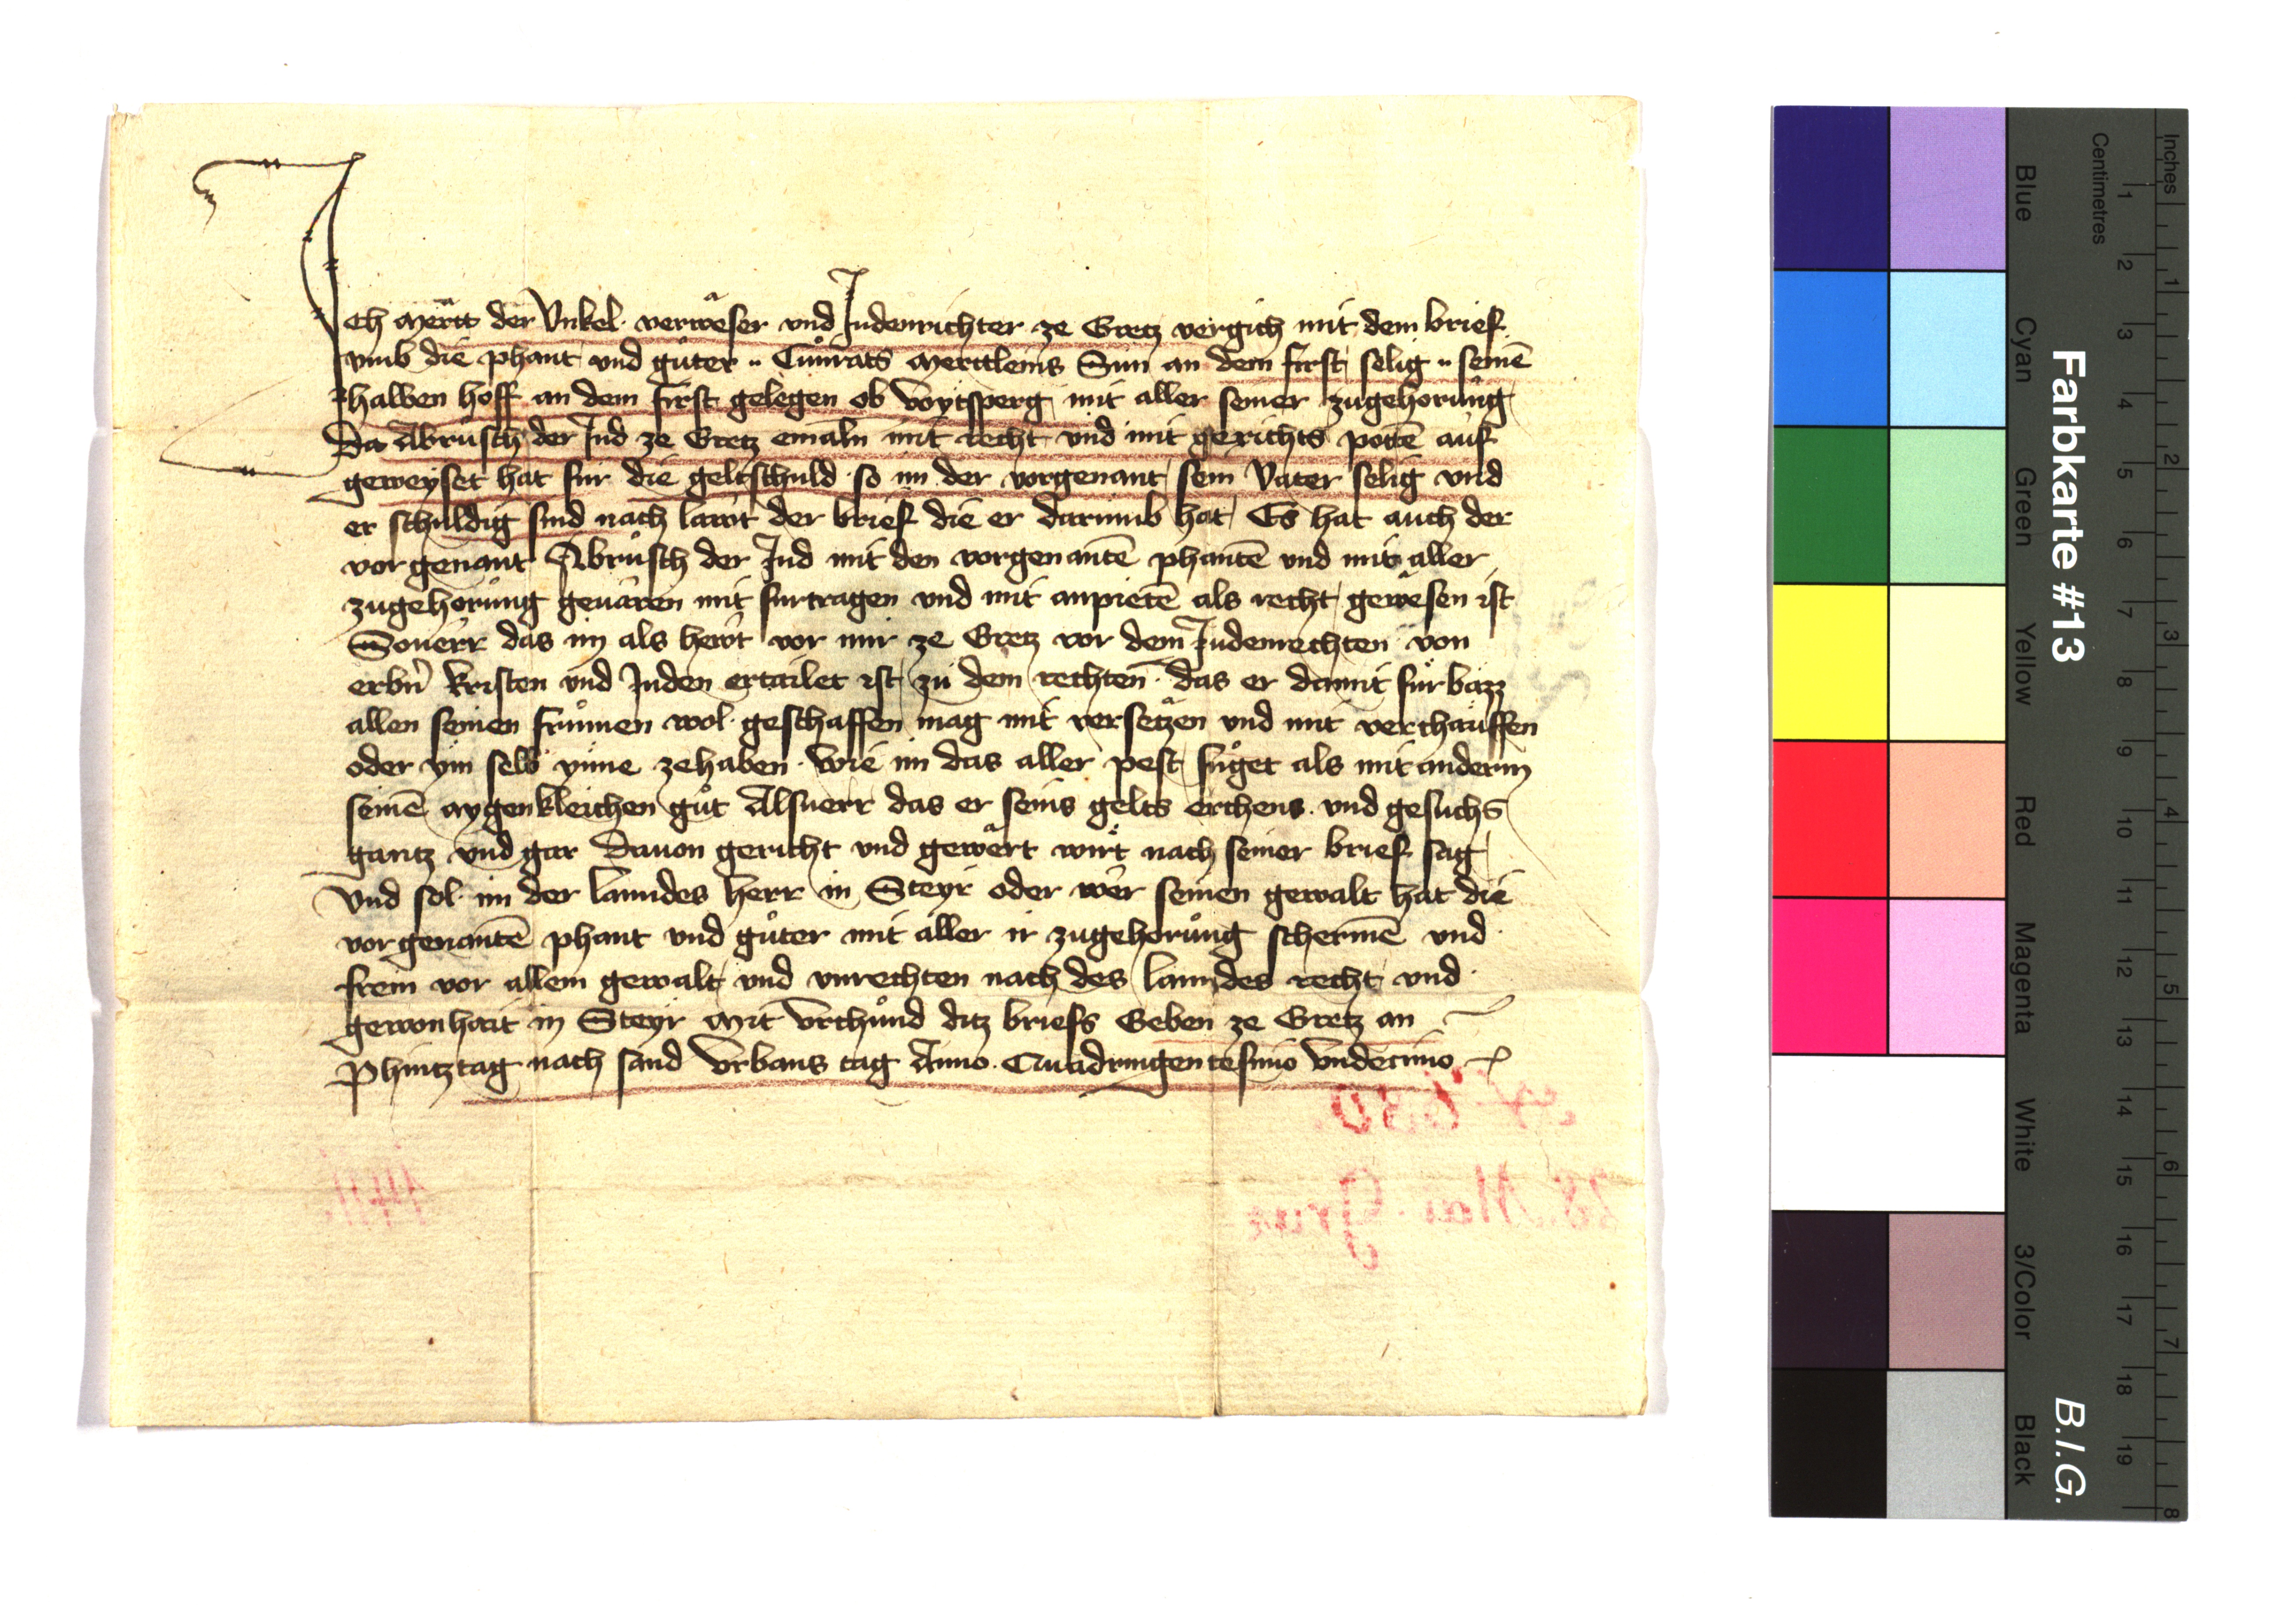 Ich Mert der Vnkel verweser vnd Judenrichter ze Gretz vergich mit dem brief
vmb die phant vnd guͤter Cuͦnrats Merttleins Sun an dem first selig seinē
halben hoff an dem first gelegen ob Voytsperg mit aller seiner zugehorung
Da Abrusch der Jud ze Gretz emaln mit recht vnd mit gerichts potē auf
geweyset hat fur die geltschuld so im der vorgenant sein Vater selig vnd
er schuldig sind nach lawt der brief die er darumb hat Es hat auch der
vorgenant Abrusch der Jud mit den vorgenantē phantē vnd mit aller
zugehorung geuaren mit furtragen vnd mit anpietē als recht gewesen ist
Souerr das im als hewt vor mir ze Gretz vor dem Judenrechten von
erbn̄ kristen vnd Juden ertailet ist zu dem rechten das er damit fur bazz
allen seinen frumen wol geschaffen mag mit versetzen vnd mit verchauffen
oder ym selb ynne zehaben wie im das aller pest fuget als mit anderm
seinē aygenkleichen guͦt Alsuerr das er seins gelts erchens vnd gesuchs
gantz vnd gar Dauon gericht vnd gewert wirt nach seiner brief sag
Vnd sol im der lanndes herr in Steyr oder wer seinen gewalt hat die
vorgenantē phant vnd guͤter mit aller ir zugehorung schermē vnd
frein vor allem gewalt vnd vnrechten nach des lanndes recht vnd
gewonhait in Steyr Mit Vrchund ditz briefs Geben ze Gretz an
Phintztag nach sand Vrbans tag Anno Quadringentesimo Vndecimo
28. Mai. Graz
1411.
Farbkarte #13
B.I.G.
Inches 1 2 3 4 5 6 7 8
Centimetres 1 2 3 4 5 6 7 8 9 10 11 12 13 14 15 16 17 18 19
Blue
Cyan
Green
Yellow
Red
Magenta
White
3/Color
Black